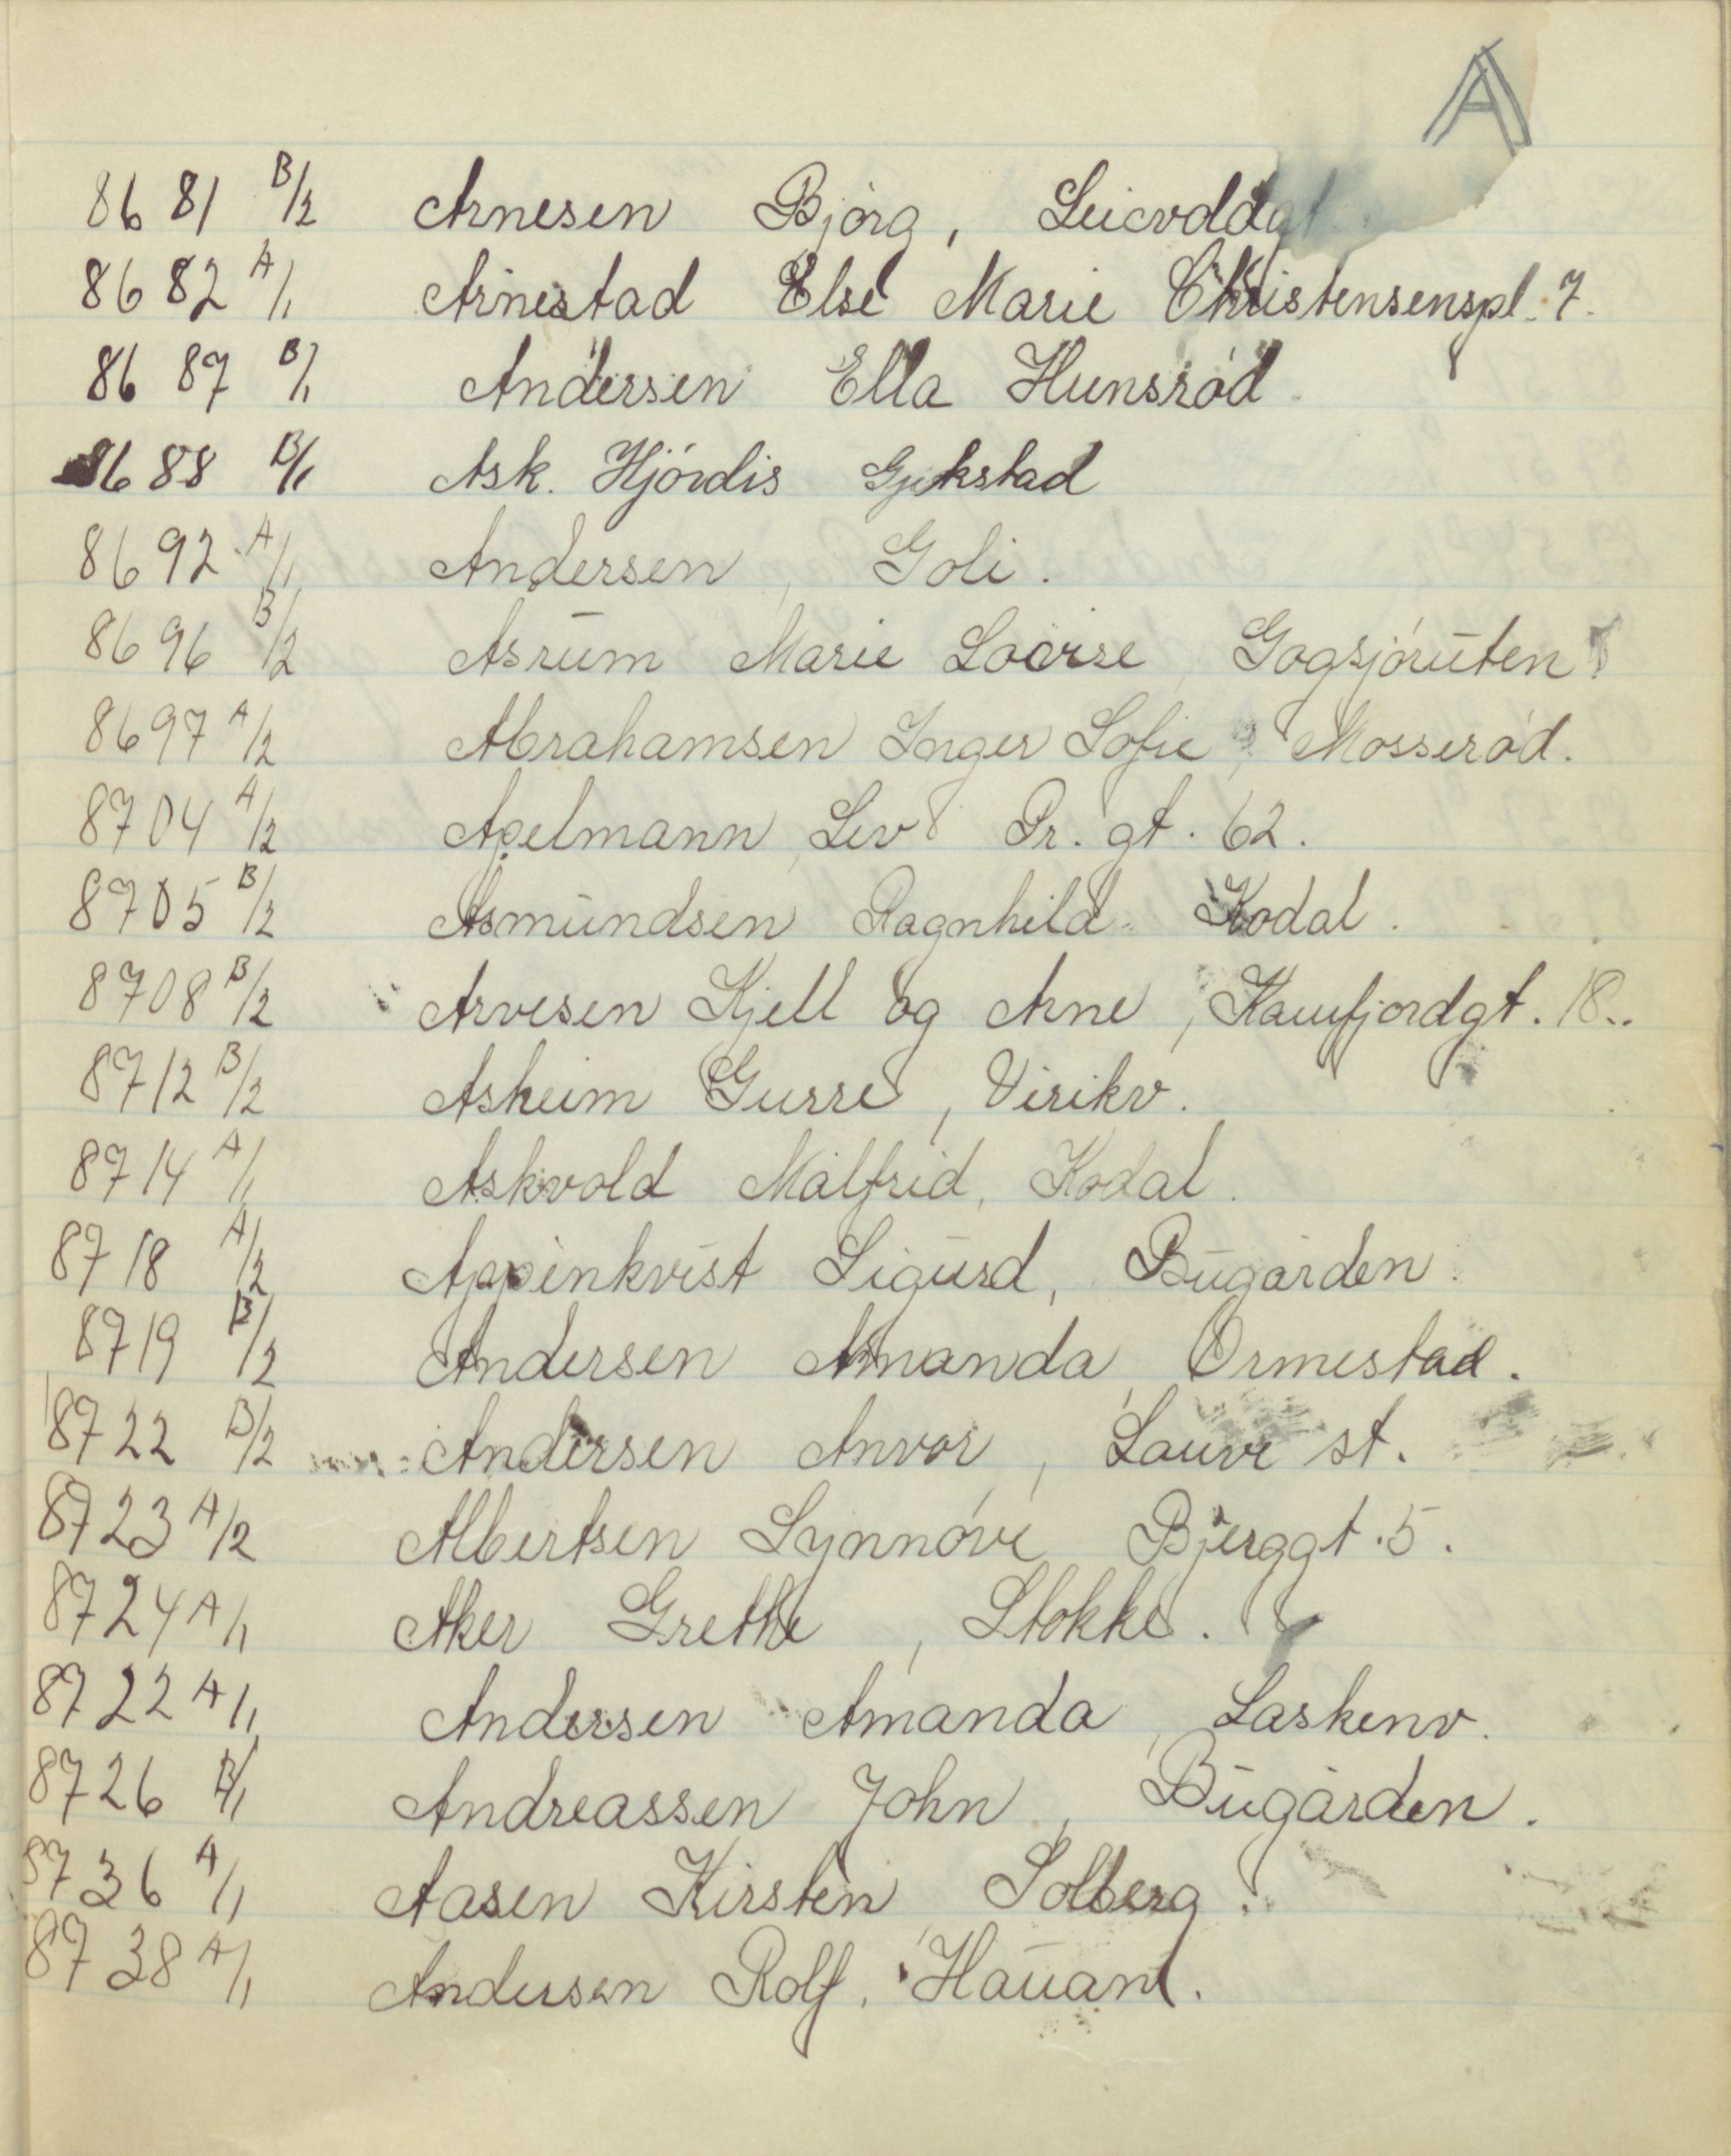 A
8681 B/2 Arnesen Bjórg,
8682 A/1 Arnestad Else Marie Christensenspl. 7.
8687 B/1 Andersen Ella Hunsród
8688 B/1 Ask. Hjórdis Gjekstad
8692 A/1 Andersen, Goli.
8696 B/2 Asrum Marie Lovise, Gogsjóruten
8697 A/2 Abrahamsen Inger Sofie, Mosseród.
8704 A/2 Apelmann, Liv Pr. gt. 62.
8705 B/2 Asmundsen Ragnhild Kodal.
8708 B/2 Arvesen Kjell og Arne, Kamfjordgt. 18.
8712 B/2 Asheim Gurre, Virikv.
8714 A/1 Askvold Målfrid, Kodal.
8718 A/2 Appinkvist Sigurd, Bugården
8719 B/2 Andersen Amanda, Ormestad.
8722 B/2 Andersen Anvor, Lauve st.
8723 A/2 Albertsen Synnóve, Bjerggt. 5.
8724 A/1 Aker Grethe, Stokke.
8722 A/1 Andersen Amanda, Laskenv.
8726 B/1 Andreassen John, Bugården.
8736 A/1 Aasen Kirsten Solberg.
8738 A/1 Andersen Rolf, Hauan.